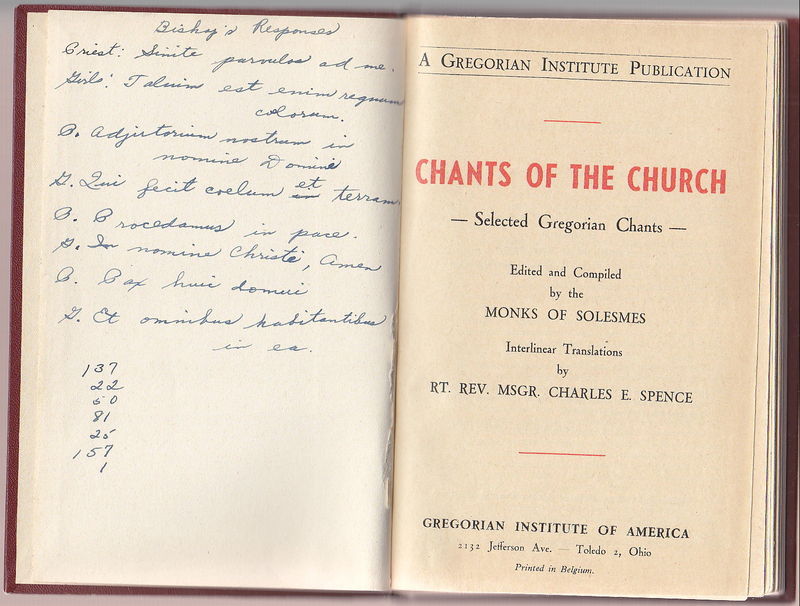 Bishop's Responses
Priest: Sinite parvulos ad me.
Girls: Talium est enim regnum
colorum.
P. Adjutorium nostrum in
nomine Domine
G. Qui fecit coelum et terram
P. Procedamus in pace.
G. In nomine Christi, Amen
P. Pax huic domui
G. Et omnibus habitantibus
in ea.
137
22
50
81
25
157
1
A GREGORIAN INSTITUTE PUBLICATION
CHANTS OF THE CHURCH
— Selected Gregorian Chants —
Edited and Compiled
by the
MONKS OF SOLESMES
Interlinear Translations
by
RT. REV. MSGR. CHARLES E. SPENCE
GREGORIAN INSTITUTE OF AMERICA
2132 Jefferson Ave. — Toledo 2, Ohio
Printed in Belgium.